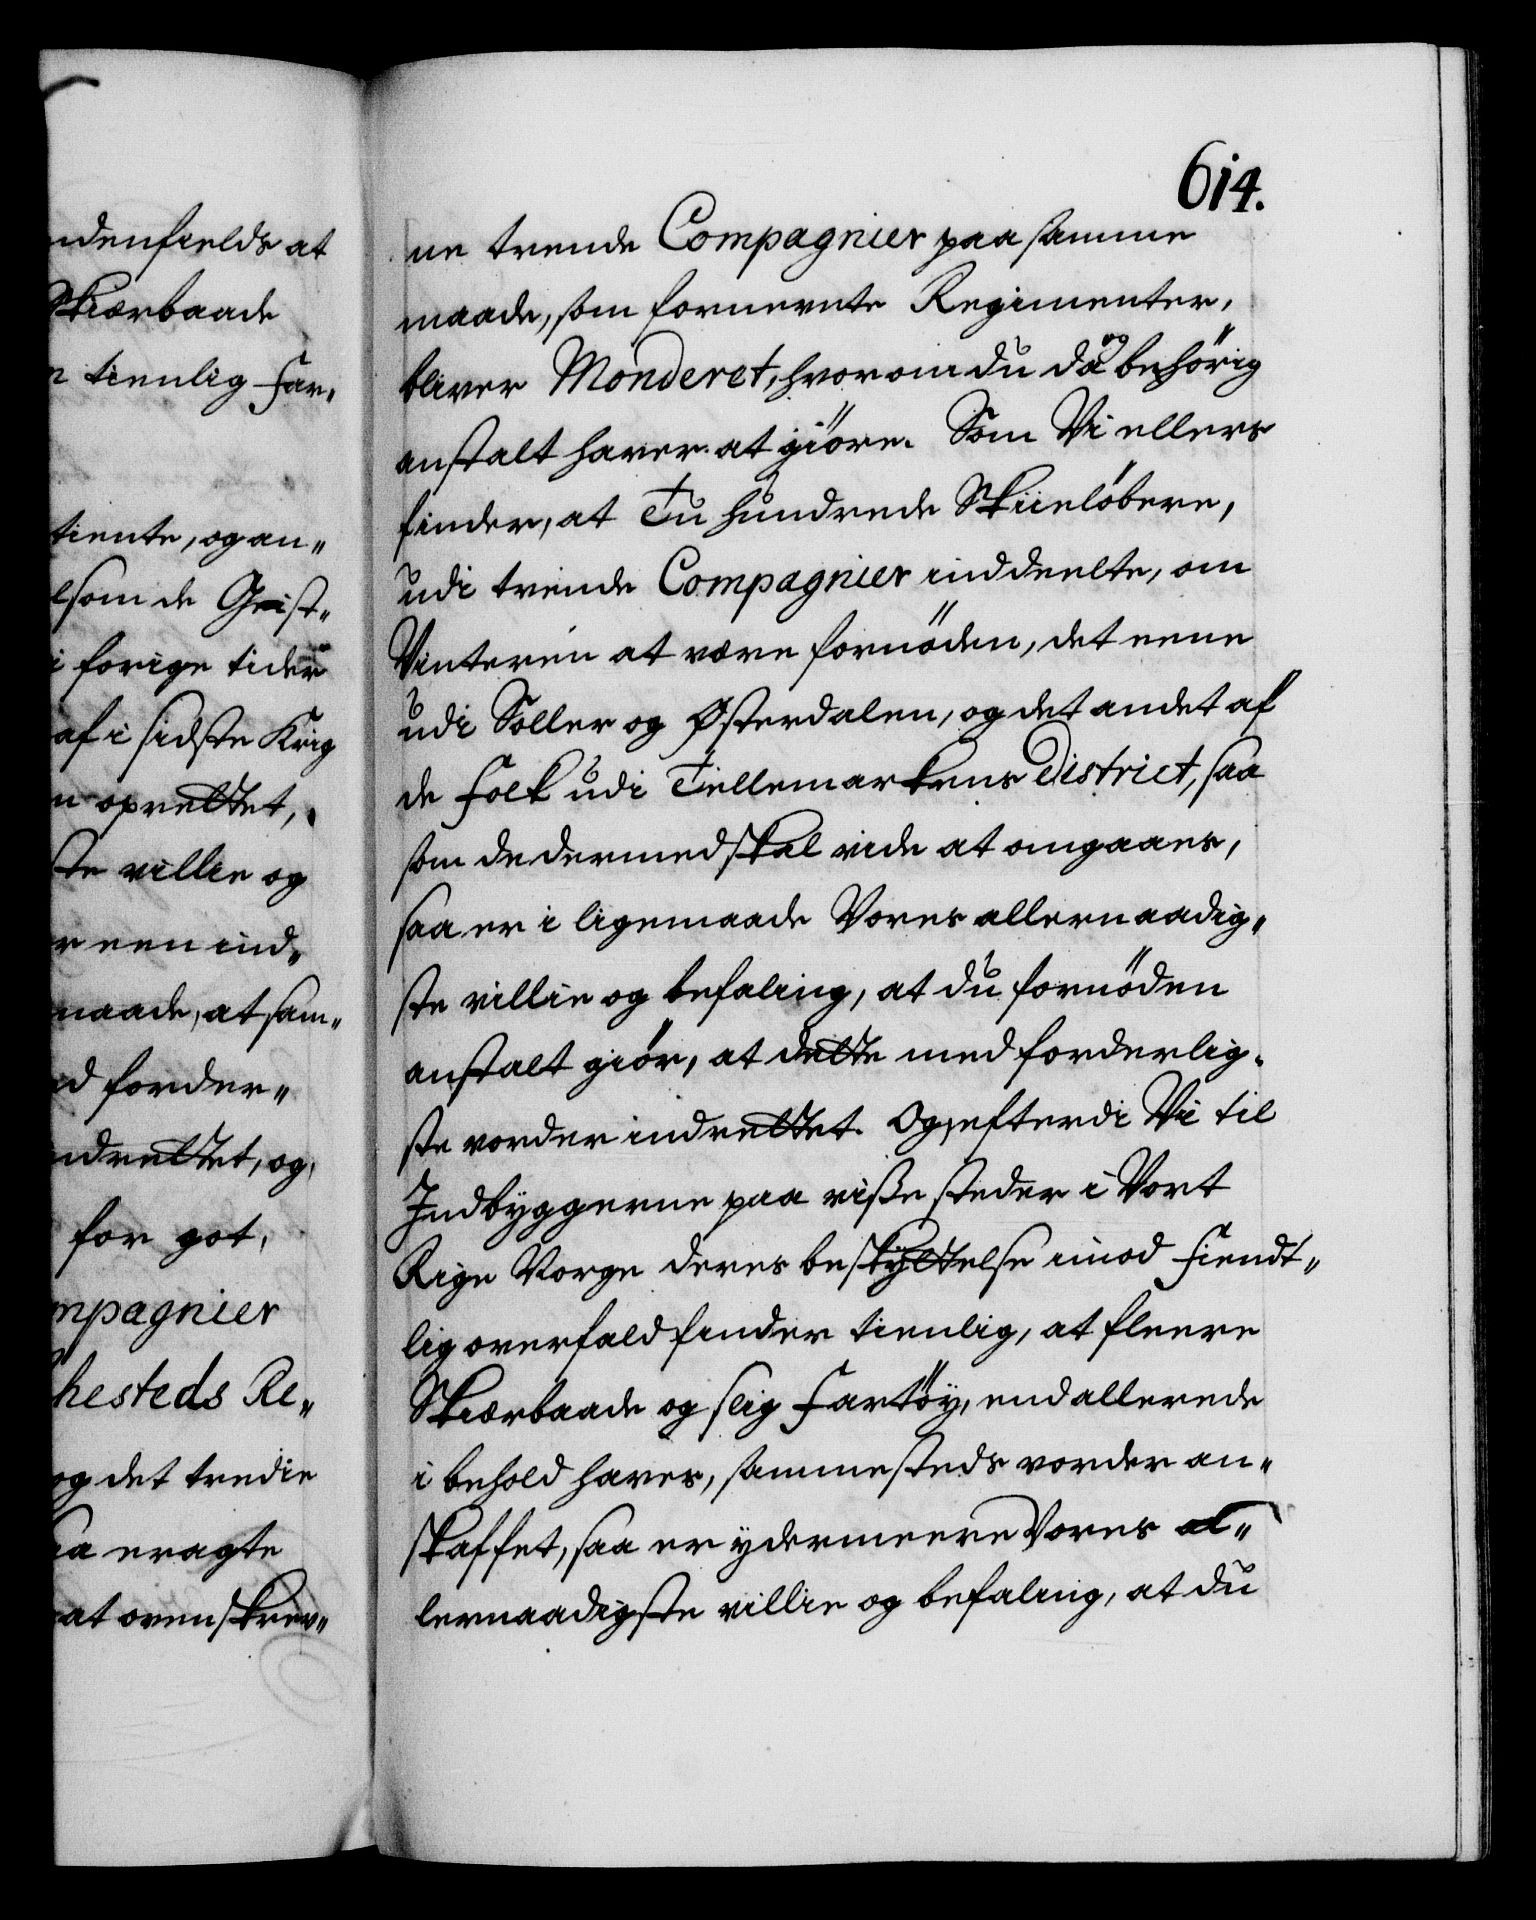 614.
ndenfields at
Skiærbaade
n tienlig Far„
tiente, og an„
lsom de Geist„
i forige tider
af i sidste Krig
n oprettet,
ste villie og
r een ind„
maade, at sam„
d forder„
ndrettet, og
for got,
mpagnier
hesteds Re„
og det tredie
aa eragte
at ovenskrev„
ne trende Compagnier paa samme
maade, som fornevnte Regimenter,
bliver Monderet, hvorom du da og behörig
anstalt haver at giöre. Som Vi ellers
finder, at Tu hundrede Skiielöbere,
udi trende Compagnier inddeelte, om
Vinteren at være fornöden, det eene
udi Soller og Østerdalen, og det andet af
de Folk udi Tellemarkens District, saa
som de dermed skal vide at omgaaes,
saa er i ligemaade Vores allernaadig„
ste villie og befaling, at du fornöden
anstalt giör, at dette med forderlig„
ste vorder indrettet. Og efterdi Vi til
Indbyggerne paa visse steder i Vort
Rige Norge deres beskyttelse imod fiendt„
lig overfald finder tienlig, at fleere
Skiærbaade og slig Fartöy, end allerede
i behold haves, sammesteds vorder an„
skaffet, saa er ydermeere Vores al„
lernaadigste villie og befaling, at du